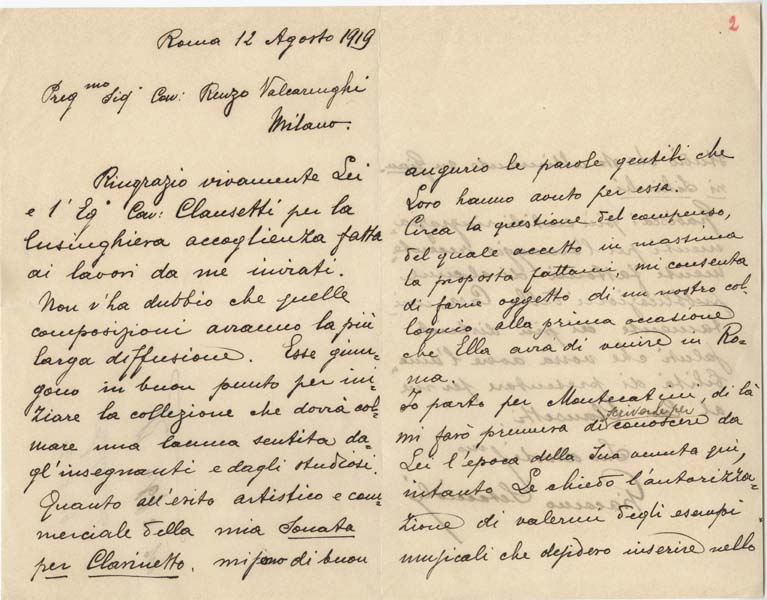 Roma 12 Agosto 1919
Preg.mo Sig. Cav: Renzo Valcarenghi
Milano.
Ringrazio vivamente Lei
e l'Eg. Cav: Clausetti per la
lusinghiera accoglienza fatta
ai lavori da me inviati.
Non v'ha dubbio che quelle
composizioni avranno la più
larga diffusione. Esse giun-
gono in buon punto per ini-
ziare la collezione che dovrà col-
mare una lacuna sentita da-
gl'insegnanti e dagli studiosi.
Quanto all'esito artistico e com-
merciale della mia Sonata
per Clarinetto, mi sono di buon
2
augurio le parole gentili che
Loro hanno avuto per essa.
Circa la questione del compenso,
del quale accetto in massima
la proposta fattami, mi consenta
di farne oggetto di un nostro col-
loquio alla prima occasione
che Ella avrà di venire in Ro-
ma.
Io parto per Montecatini, di là
mi farò premura di scriverle per conoscere da
Lei l'epoca della Sua venuta qui,
intanto Le chiedo l'autorizza-
zione di valermi degli esempi
musicali che desidero inserire nello